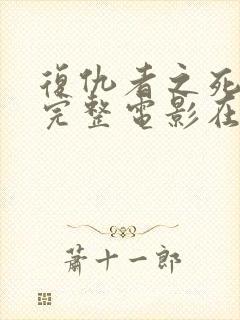 復仇者之死
完整電影在
蕭十一郎